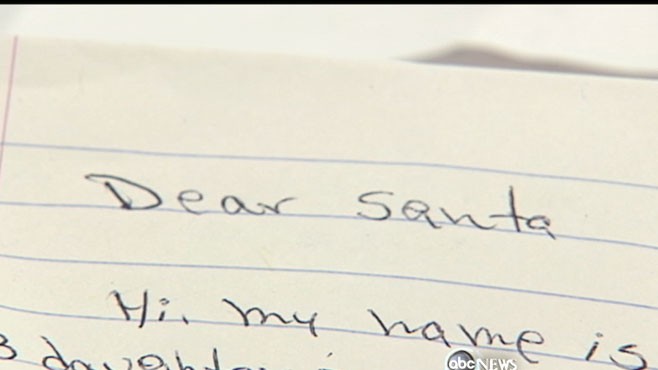 Dear Santa
Hi, my name is
3 daughter
abc NEWS